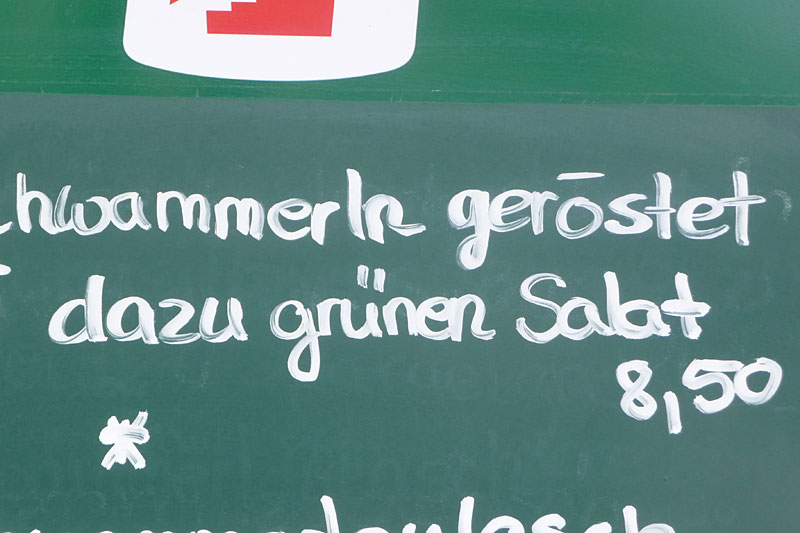 chwammerln geröstet
dazu grünen Salat
8,50
*